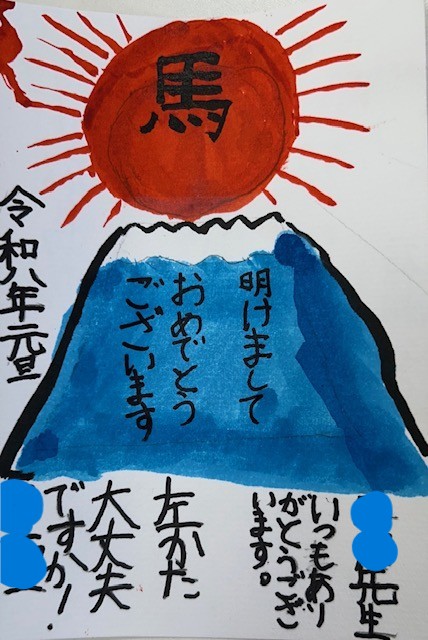 馬
明けまして
おめでとう
ございます
令和八年元旦
先生
いつもあり
がとうござ
います。
左かた
大丈夫
ですか!